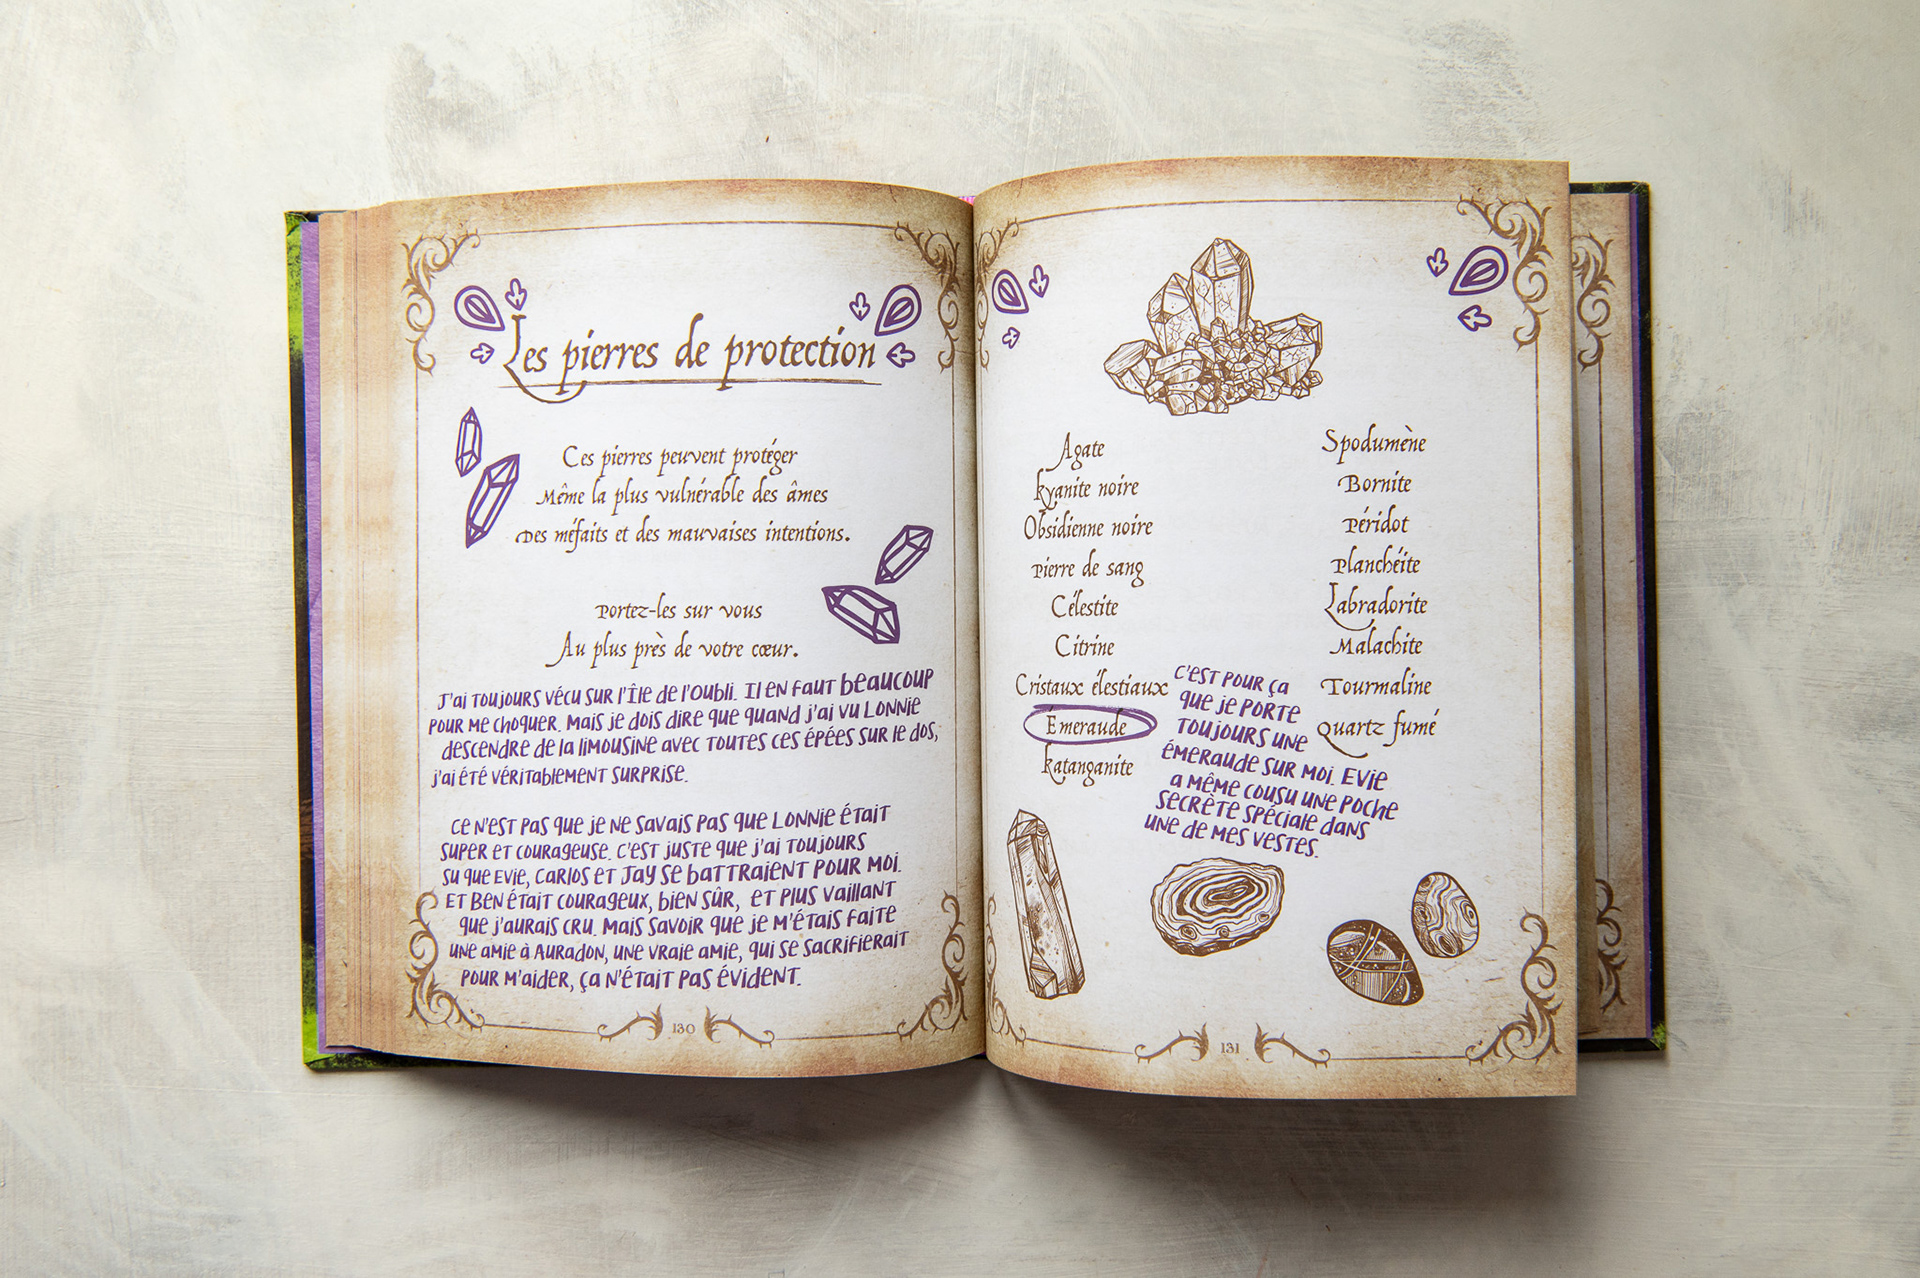 Les pierres de protection
Ces pierres peuvent protéger
Même la plus vulnérable des âmes
Des méfaits et des mauvaises intentions.
Portez-les sur vous
Au plus près de votre cœur.
J'ai toujours vécu sur l'Île de l'Oubli. Il en faut beaucoup
pour me choquer. Mais je dois dire que quand j'ai vu Lonnie
descendre de la limousine avec toutes ces épées sur le dos,
j'ai été véritablement surprise.
Ce n'est pas que je ne savais pas que Lonnie était
super et courageuse. C'est juste que j'ai toujours
su que Evie, Carlos et Jay se battraient pour moi.
Et Ben était courageux, bien sûr, et plus vaillant
que j'aurais cru. Mais savoir que je m'étais faite
une amie à Auradon, une vraie amie, qui se sacrifierait
pour m'aider, ça n'était pas évident.
130
Agate
Kyanite noire
Obsidienne noire
Pierre de sang
Célestite
Citrine
Cristaux élestiaux
Émeraude
Katanganite
C'est pour ça
que je porte
toujours une
émeraude sur moi. Evie
a même cousu une poche
secrète spéciale dans
une de mes vestes.
Spodumène
Bornite
Péridot
Planchéite
Labradorite
Malachite
Tourmaline
Quartz fumé
131